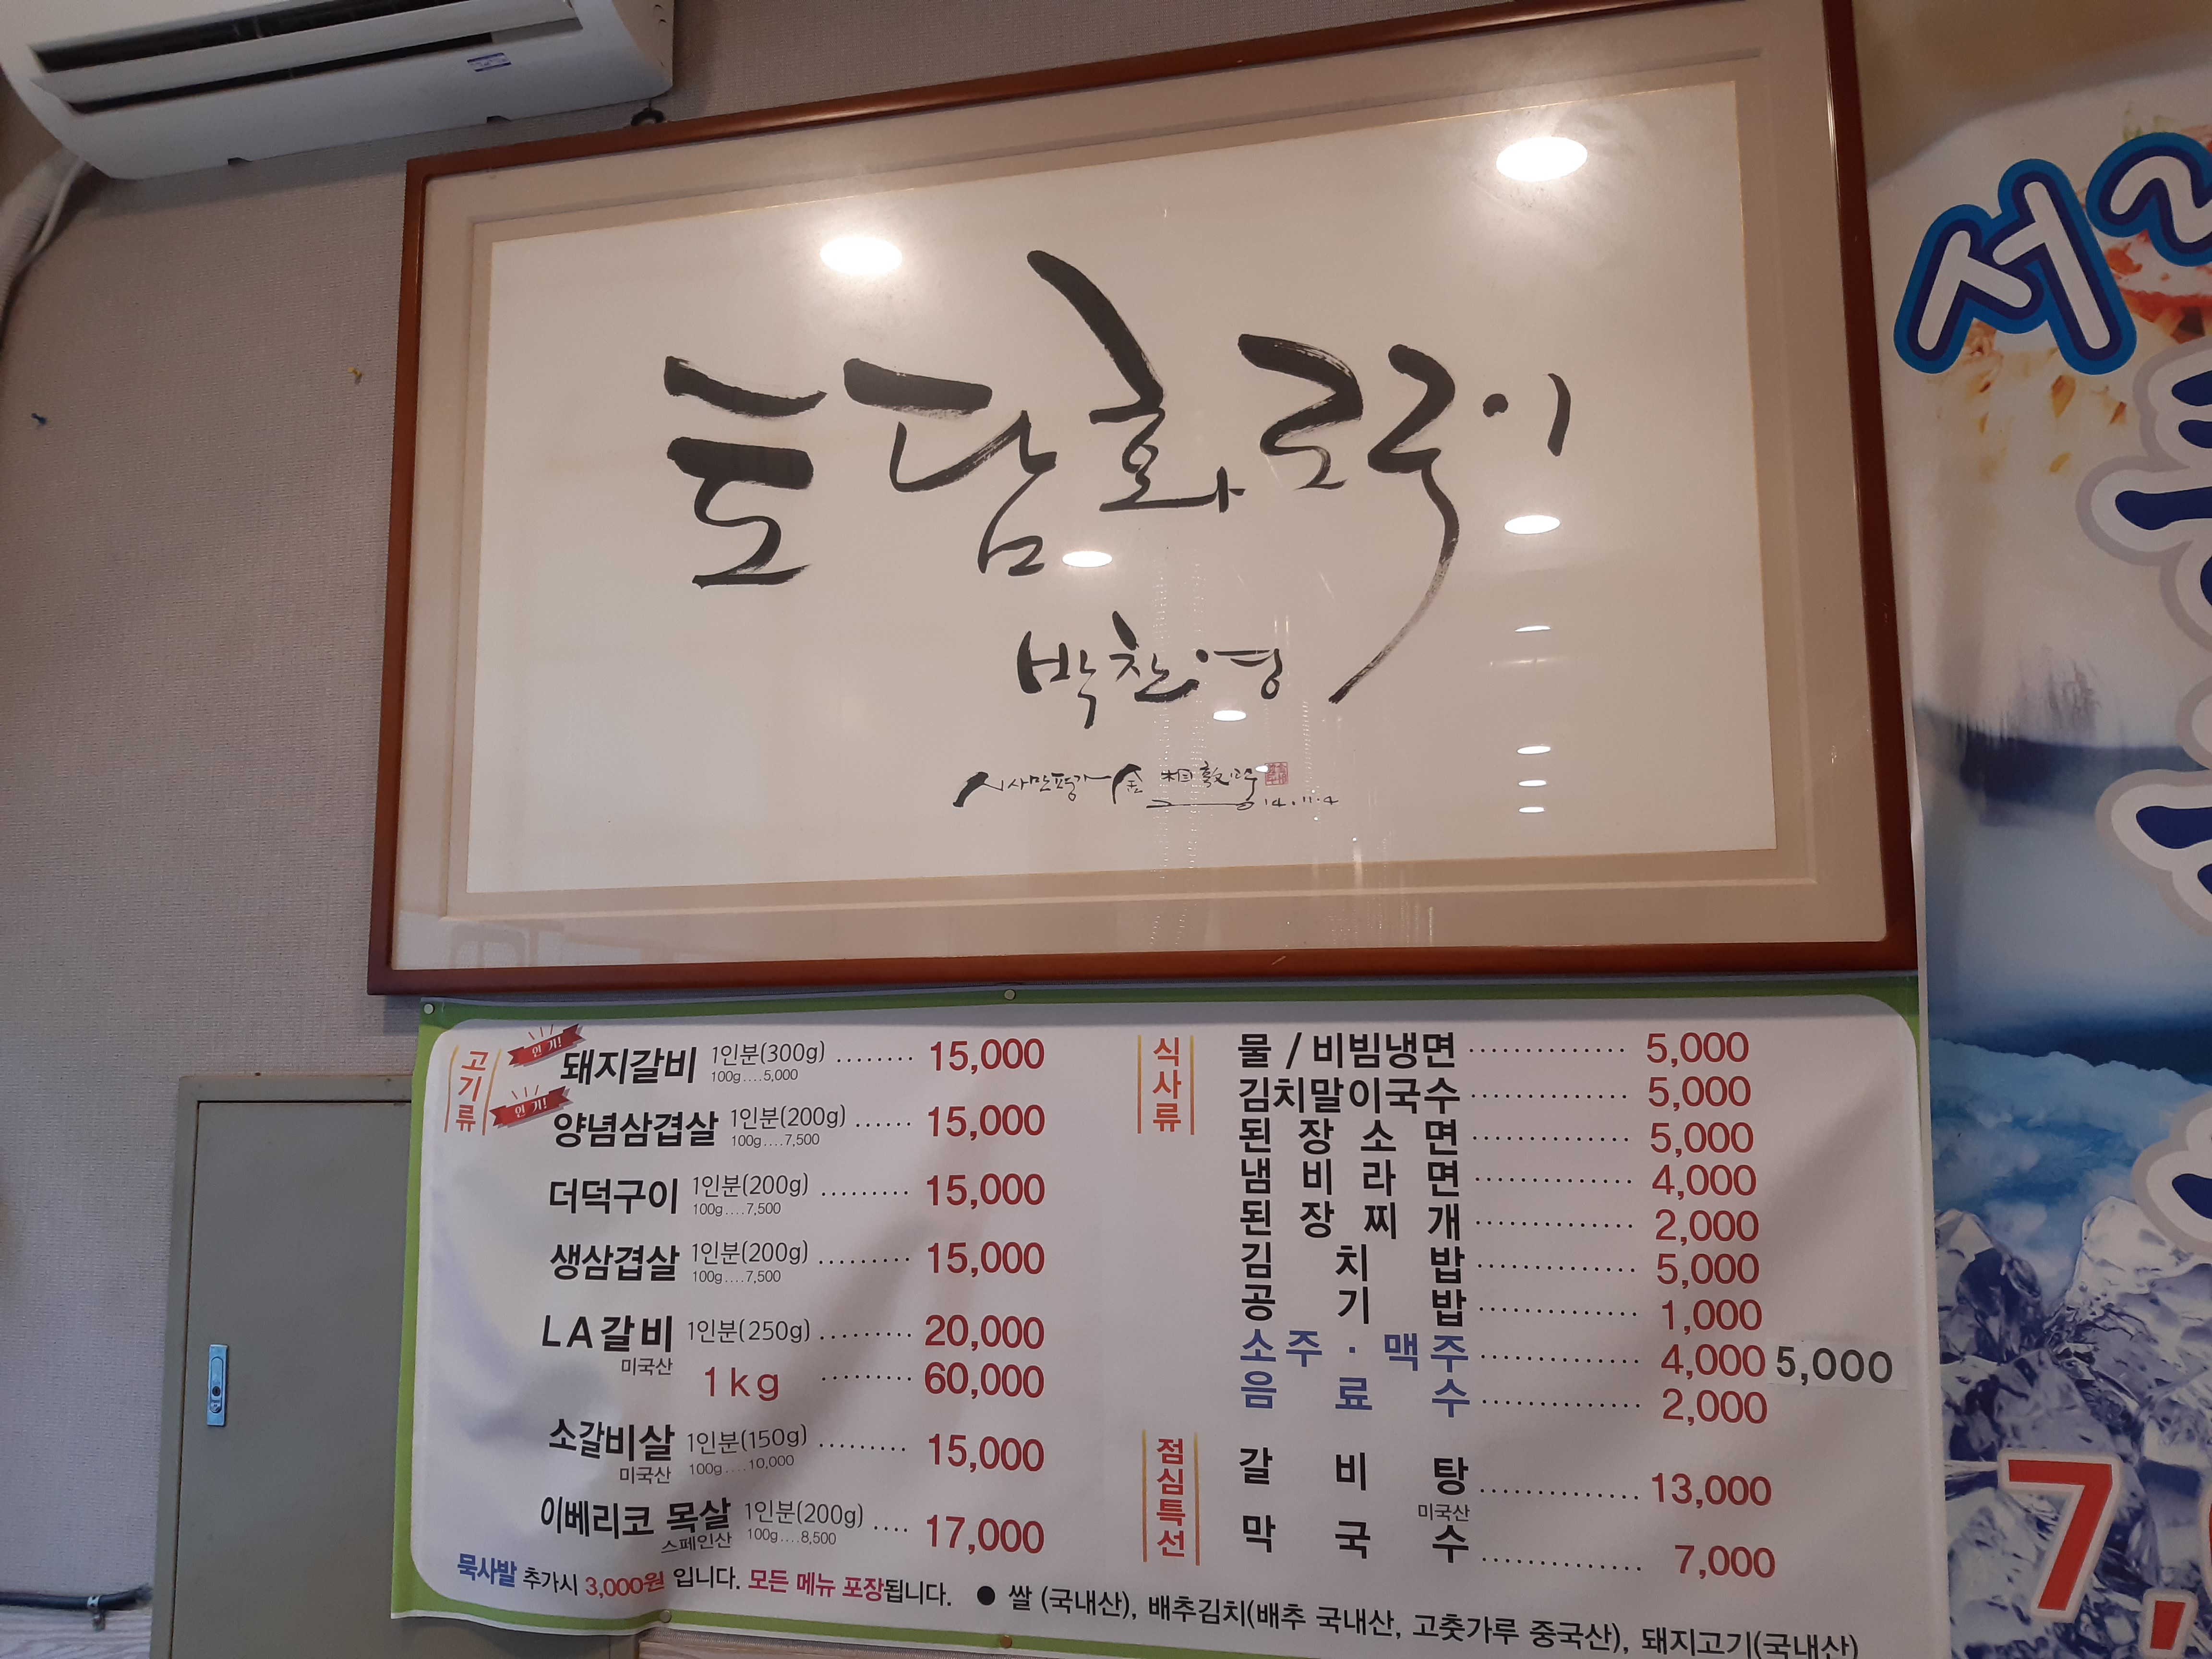 토담화로구이
박찬영
시사만평가 金相敦
14.11.4
고기류
인기!
돼지갈비 1인분(300g) ........ 15,000
100g....5,000
인기!
양념삼겹살 1인분(200g) ...... 15,000
100g....7,500
더덕구이 1인분(200g) ......... 15,000
100g....7,500
생삼겹살 1인분(200g) ......... 15,000
100g....7,500
LA갈비 1인분(250g) ......... 20,000
미국산
1kg ......... 60,000
소갈비살 1인분(150g) ......... 15,000
미국산 100g....10,000
이베리코 목살 1인분(200g) .... 17,000
스페인산 100g....8,500
식사류
물/비빔냉면 .............. 5,000
김치말이국수 .............. 5,000
된장소면 .............. 5,000
냄비라면 .............. 4,000
된장찌개 .............. 2,000
김치밥 .............. 5,000
공기밥 .............. 1,000
소주·맥주 .............. 4,000 5,000
음료수 .............. 2,000
점심특선
갈비탕 .............. 13,000
미국산
막국수 .............. 7,000
묵사발 추가시 3,000원 입니다. 모든 메뉴 포장됩니다. ● 쌀 (국내산), 배추김치(배추 국내산, 고춧가루 중국산), 돼지고기(국내산)
서
7,